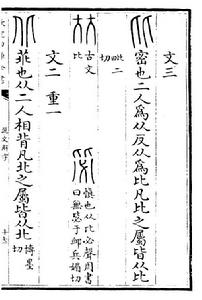 文三
比 密也二人爲从反从爲比凡比之屬皆从比
毗二切
古文比
毖 愼也从比必聲周書
曰無毖于卹兵媚切
文二 重一
北 乖也从二人相背凡北之屬皆从北
博墨切
說文解字